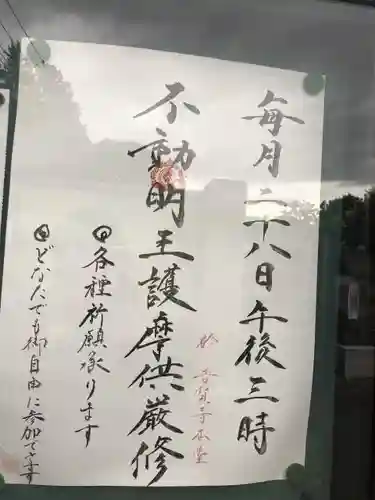 毎月二十八日午後三時
於 音賢寺本堂
不動明王護摩供厳修
各種祈願承ります
どなたでも御自由に参加できます